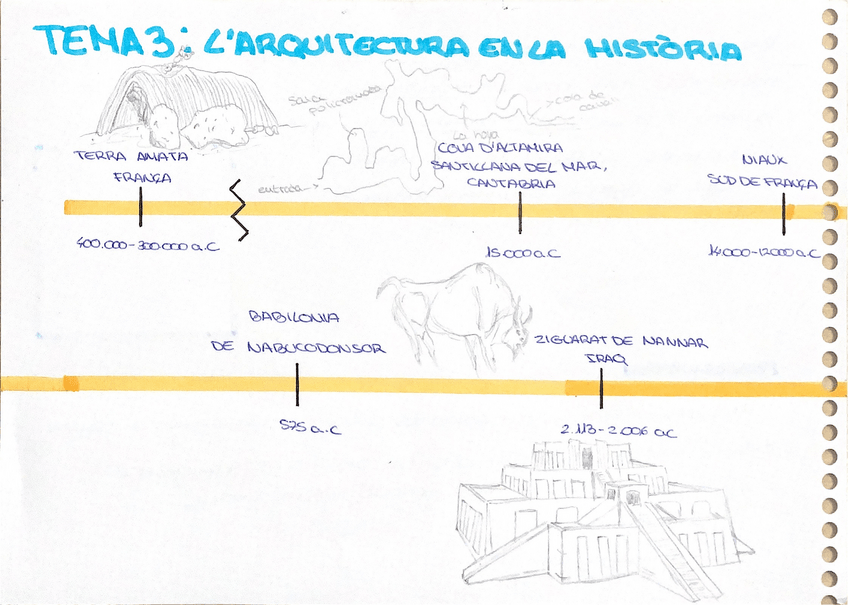 TEMA 3: L'ARQUITECTURA EN LA HISTÒRIA
Sala
policromada
cola de
caballo
La hoja
entrada
TERRA AMATA
FRANÇA
COVA D'ALTAMIRA
SANTILLANA DEL MAR,
CANTABRIA
NIAUX
SUD DE FRANÇA
400.000-300.000 a.C
15.000 a.C
14.000-12000 a.C
BABILONIA
DE NABUCODONSOR
ZIGUARAT DE NANNAR
IRAQ
575 a.C
2.113-2.006 a.C